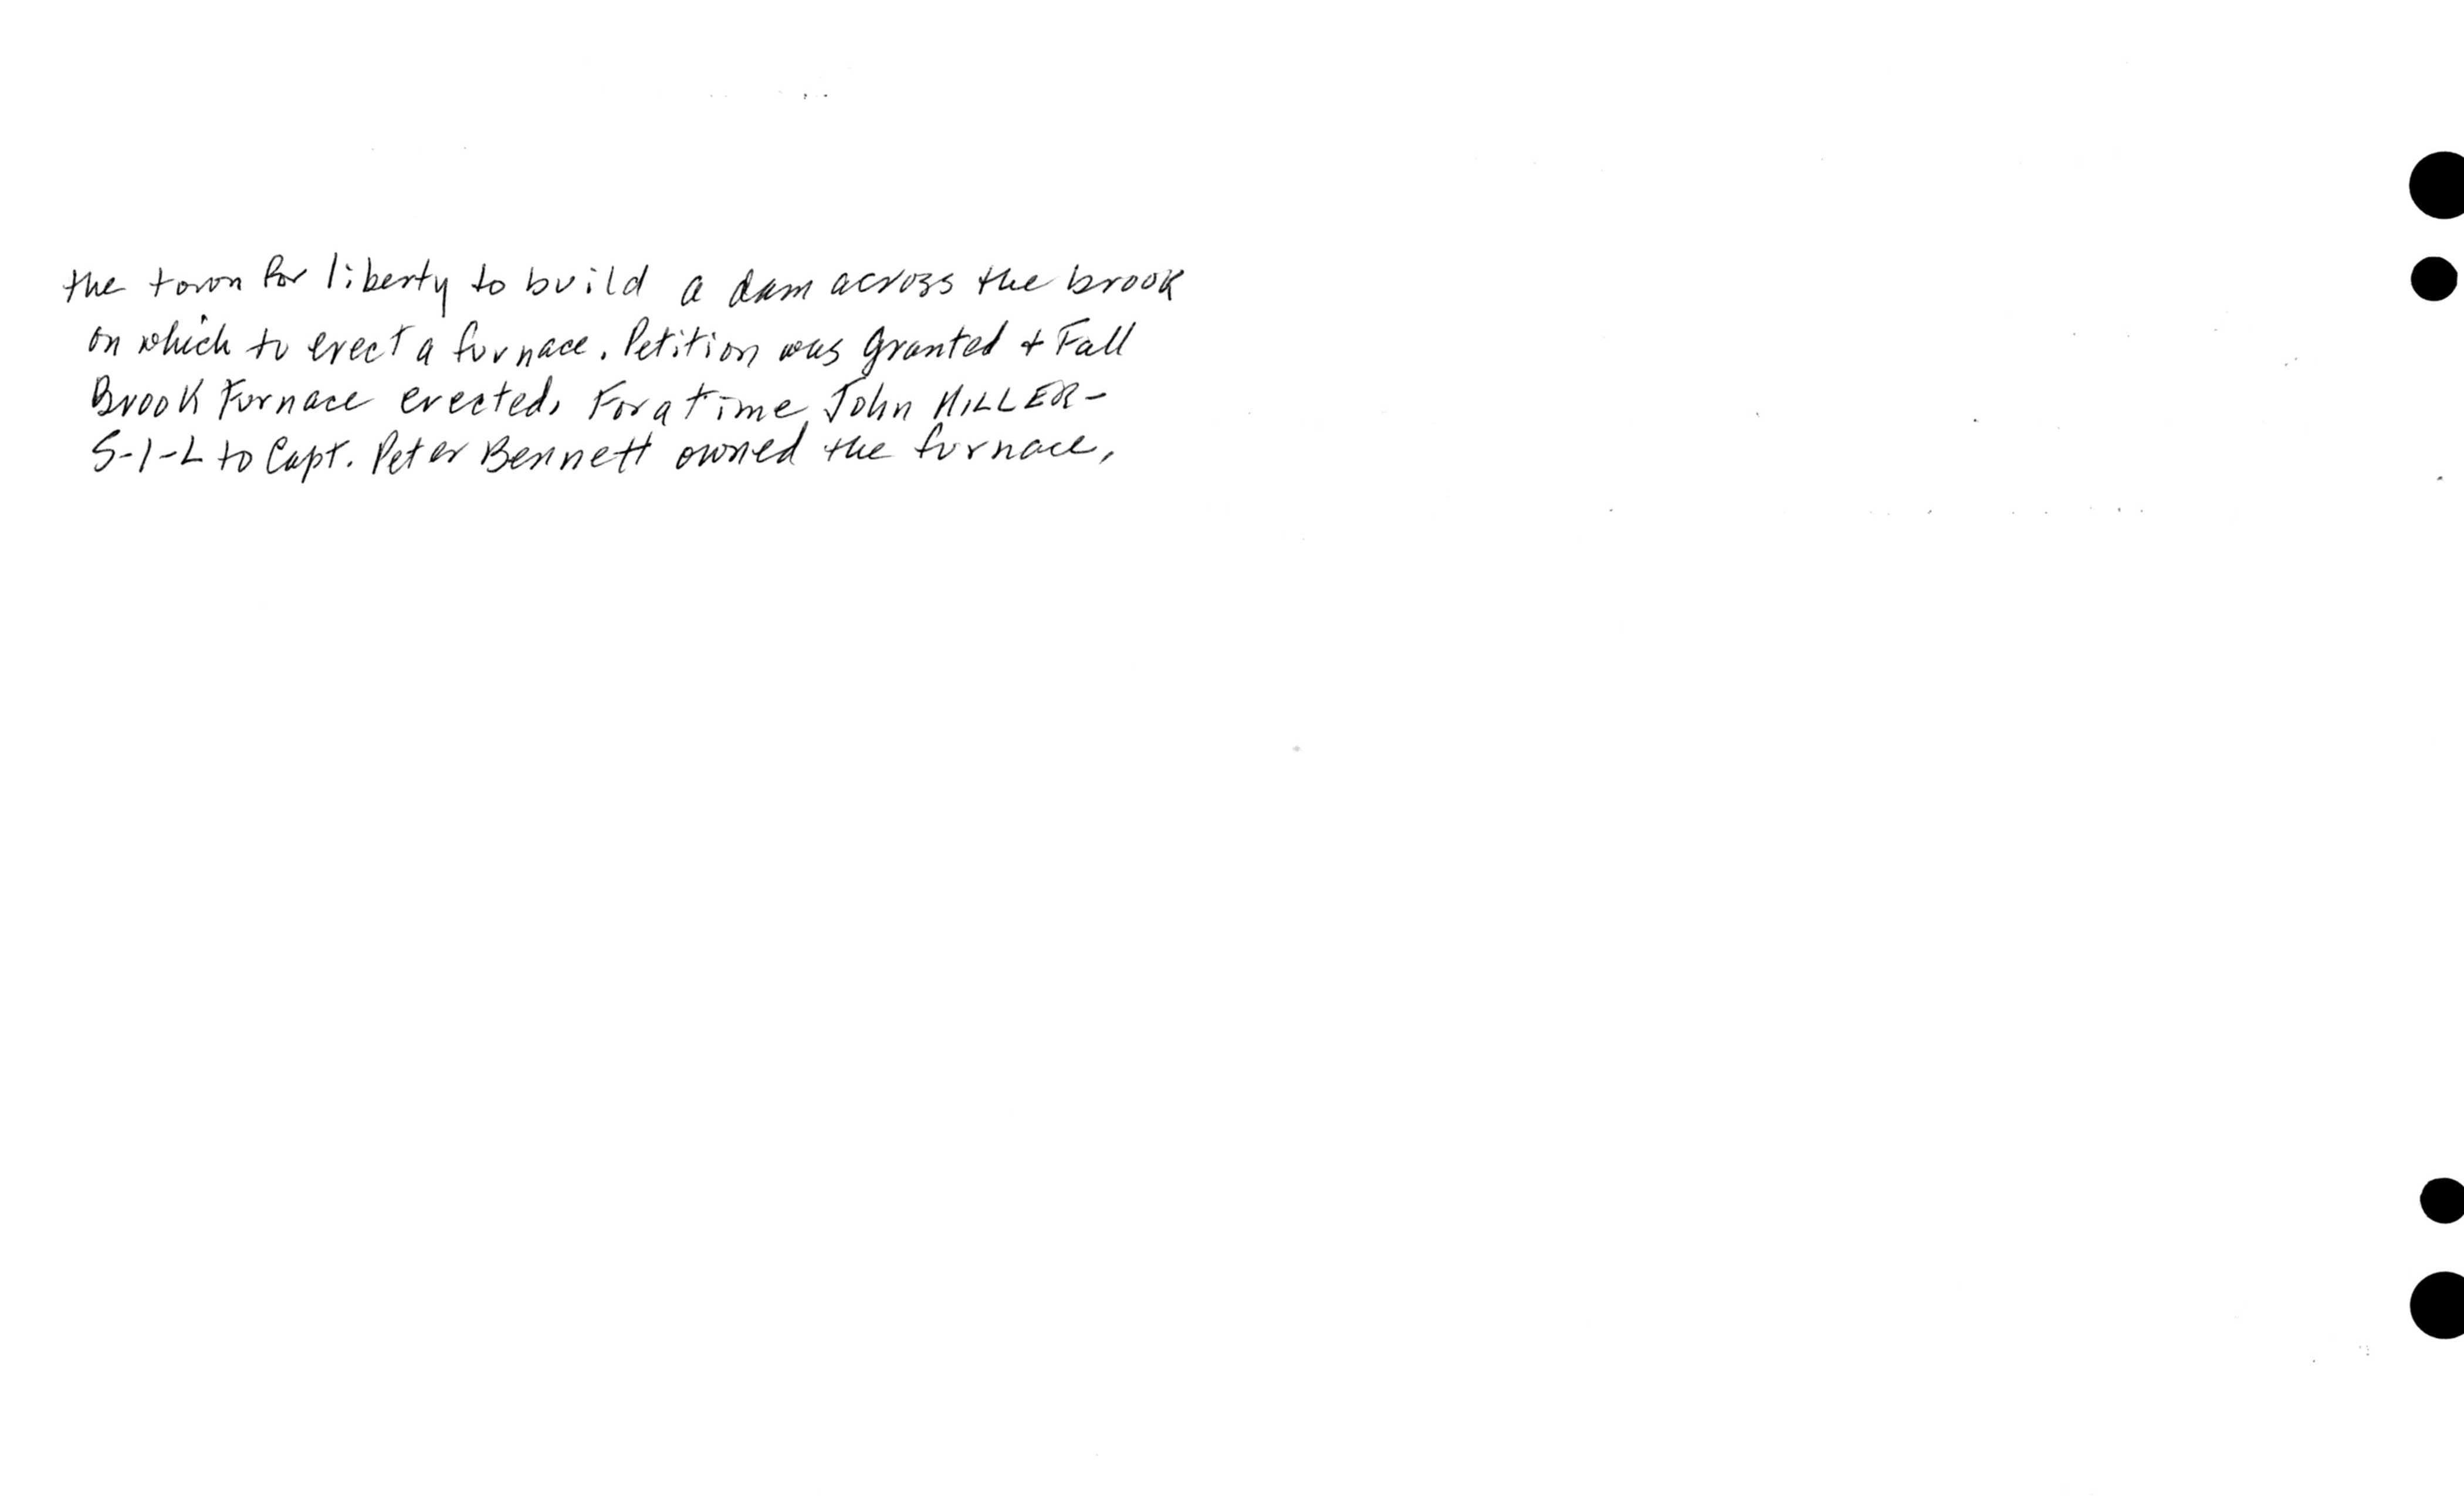 the town for liberty to build a dam across the brook
on which to erect a furnace. Petition was granted + Fall
Brook Furnace erected. For a time John MILLER-
S-I-L to Capt. Peter Bennett owned the furnace.